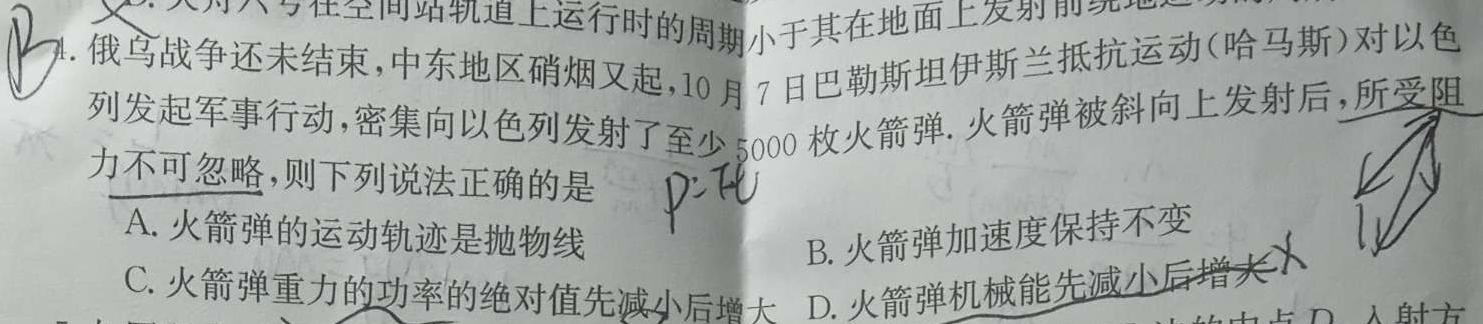 六号在空间站轨道上运行时的周期小于其在地面上发射前绕地
B
4. 俄乌战争还未结束,中东地区硝烟又起,10月7日巴勒斯坦伊斯兰抵抗运动(哈马斯)对以色
列发起军事行动,密集向以色列发射了至少5000枚火箭弹.火箭弹被斜向上发射后,所受阻
力不可忽略,则下列说法正确的是
P=Fv
A. 火箭弹的运动轨迹是抛物线
B. 火箭弹加速度保持不变
C. 火箭弹重力的功率的绝对值先减小后增大 D. 火箭弹机械能先减小后增大
入射方